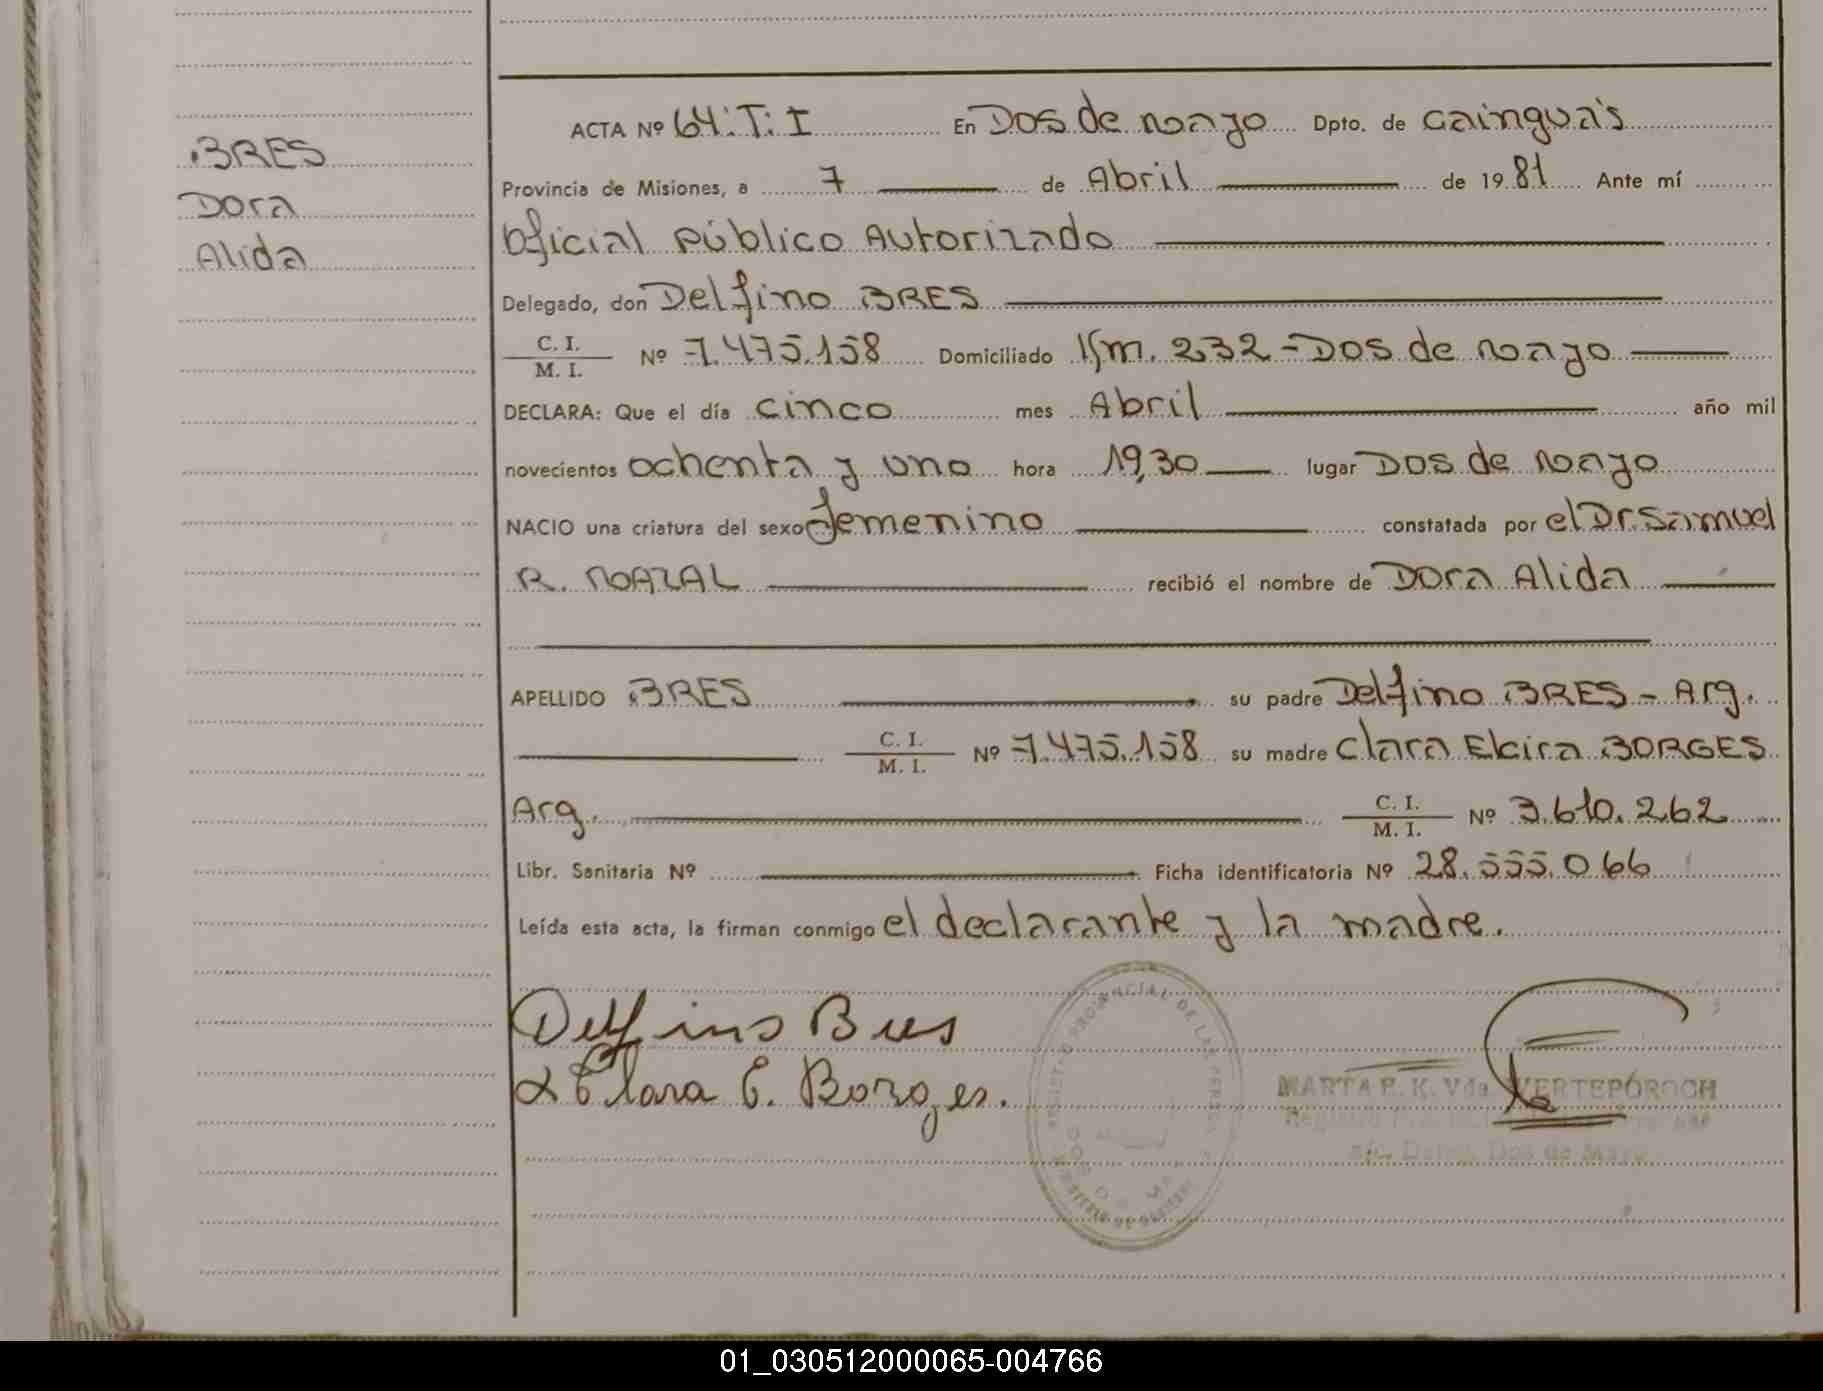 BRES
Dora
Alida
ACTA Nº 64:T:I En Dos de Mayo Dpto. de Cainguá's
Provincia de Misiones, a 7 de Abril de 1981 Ante mí
Oficial Público Autorizado
Delegado, don Delfino BRES
C. I.
M. I. Nº 7.475.158 Domiciliado Km. 232 - Dos de Mayo
DECLARA: Que el día cinco mes Abril año mil
novecientos ochenta y uno hora 19,30 lugar Dos de Mayo
NACIO una criatura del sexo femenino constatada por el Dr. Samuel
R. MAZAL recibió el nombre de Dora Alida
APELLIDO BRES su padre Delfino BRES - Arg.
C. I.
M. I. Nº 7.475.158 su madre Clara Elcira BORGES
Arg. C. I.
M. I. Nº 3.610.262
Libr. Sanitaria Nº Ficha identificatoria Nº 28.555.066
Leída esta acta, la firman conmigo el declarante y la madre.
Delfino Bres
Clara E. Borges.
MARTA F. K. Vda. WERTEPÓROCH
Dos de Mayo
01_030512000065-004766